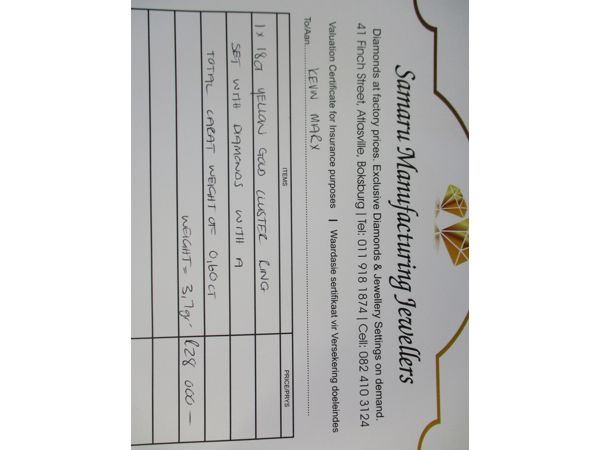 Samaru Manufacturing Jewellers
Diamonds at factory prices. Exclusive Diamonds & Jewellery Settings on demand.
41 Finch Street, Atlasville, Boksburg | Tel: 011 918 1874 | Cell: 082 410 3124
Valuation Certificate for Insurance purposes | Waardasie sertifikaat vir Versekering doeleindes
To/Aan KEVIN MARX
ITEMS PRICE/PRYS
1 x 18ct YELLOW GOLD CLUSTER RING
SET WITH DIAMONDS WITH A
TOTAL CARAT WEIGHT OF 0,60CT
WEIGHT = 3,7gr R28 000 —